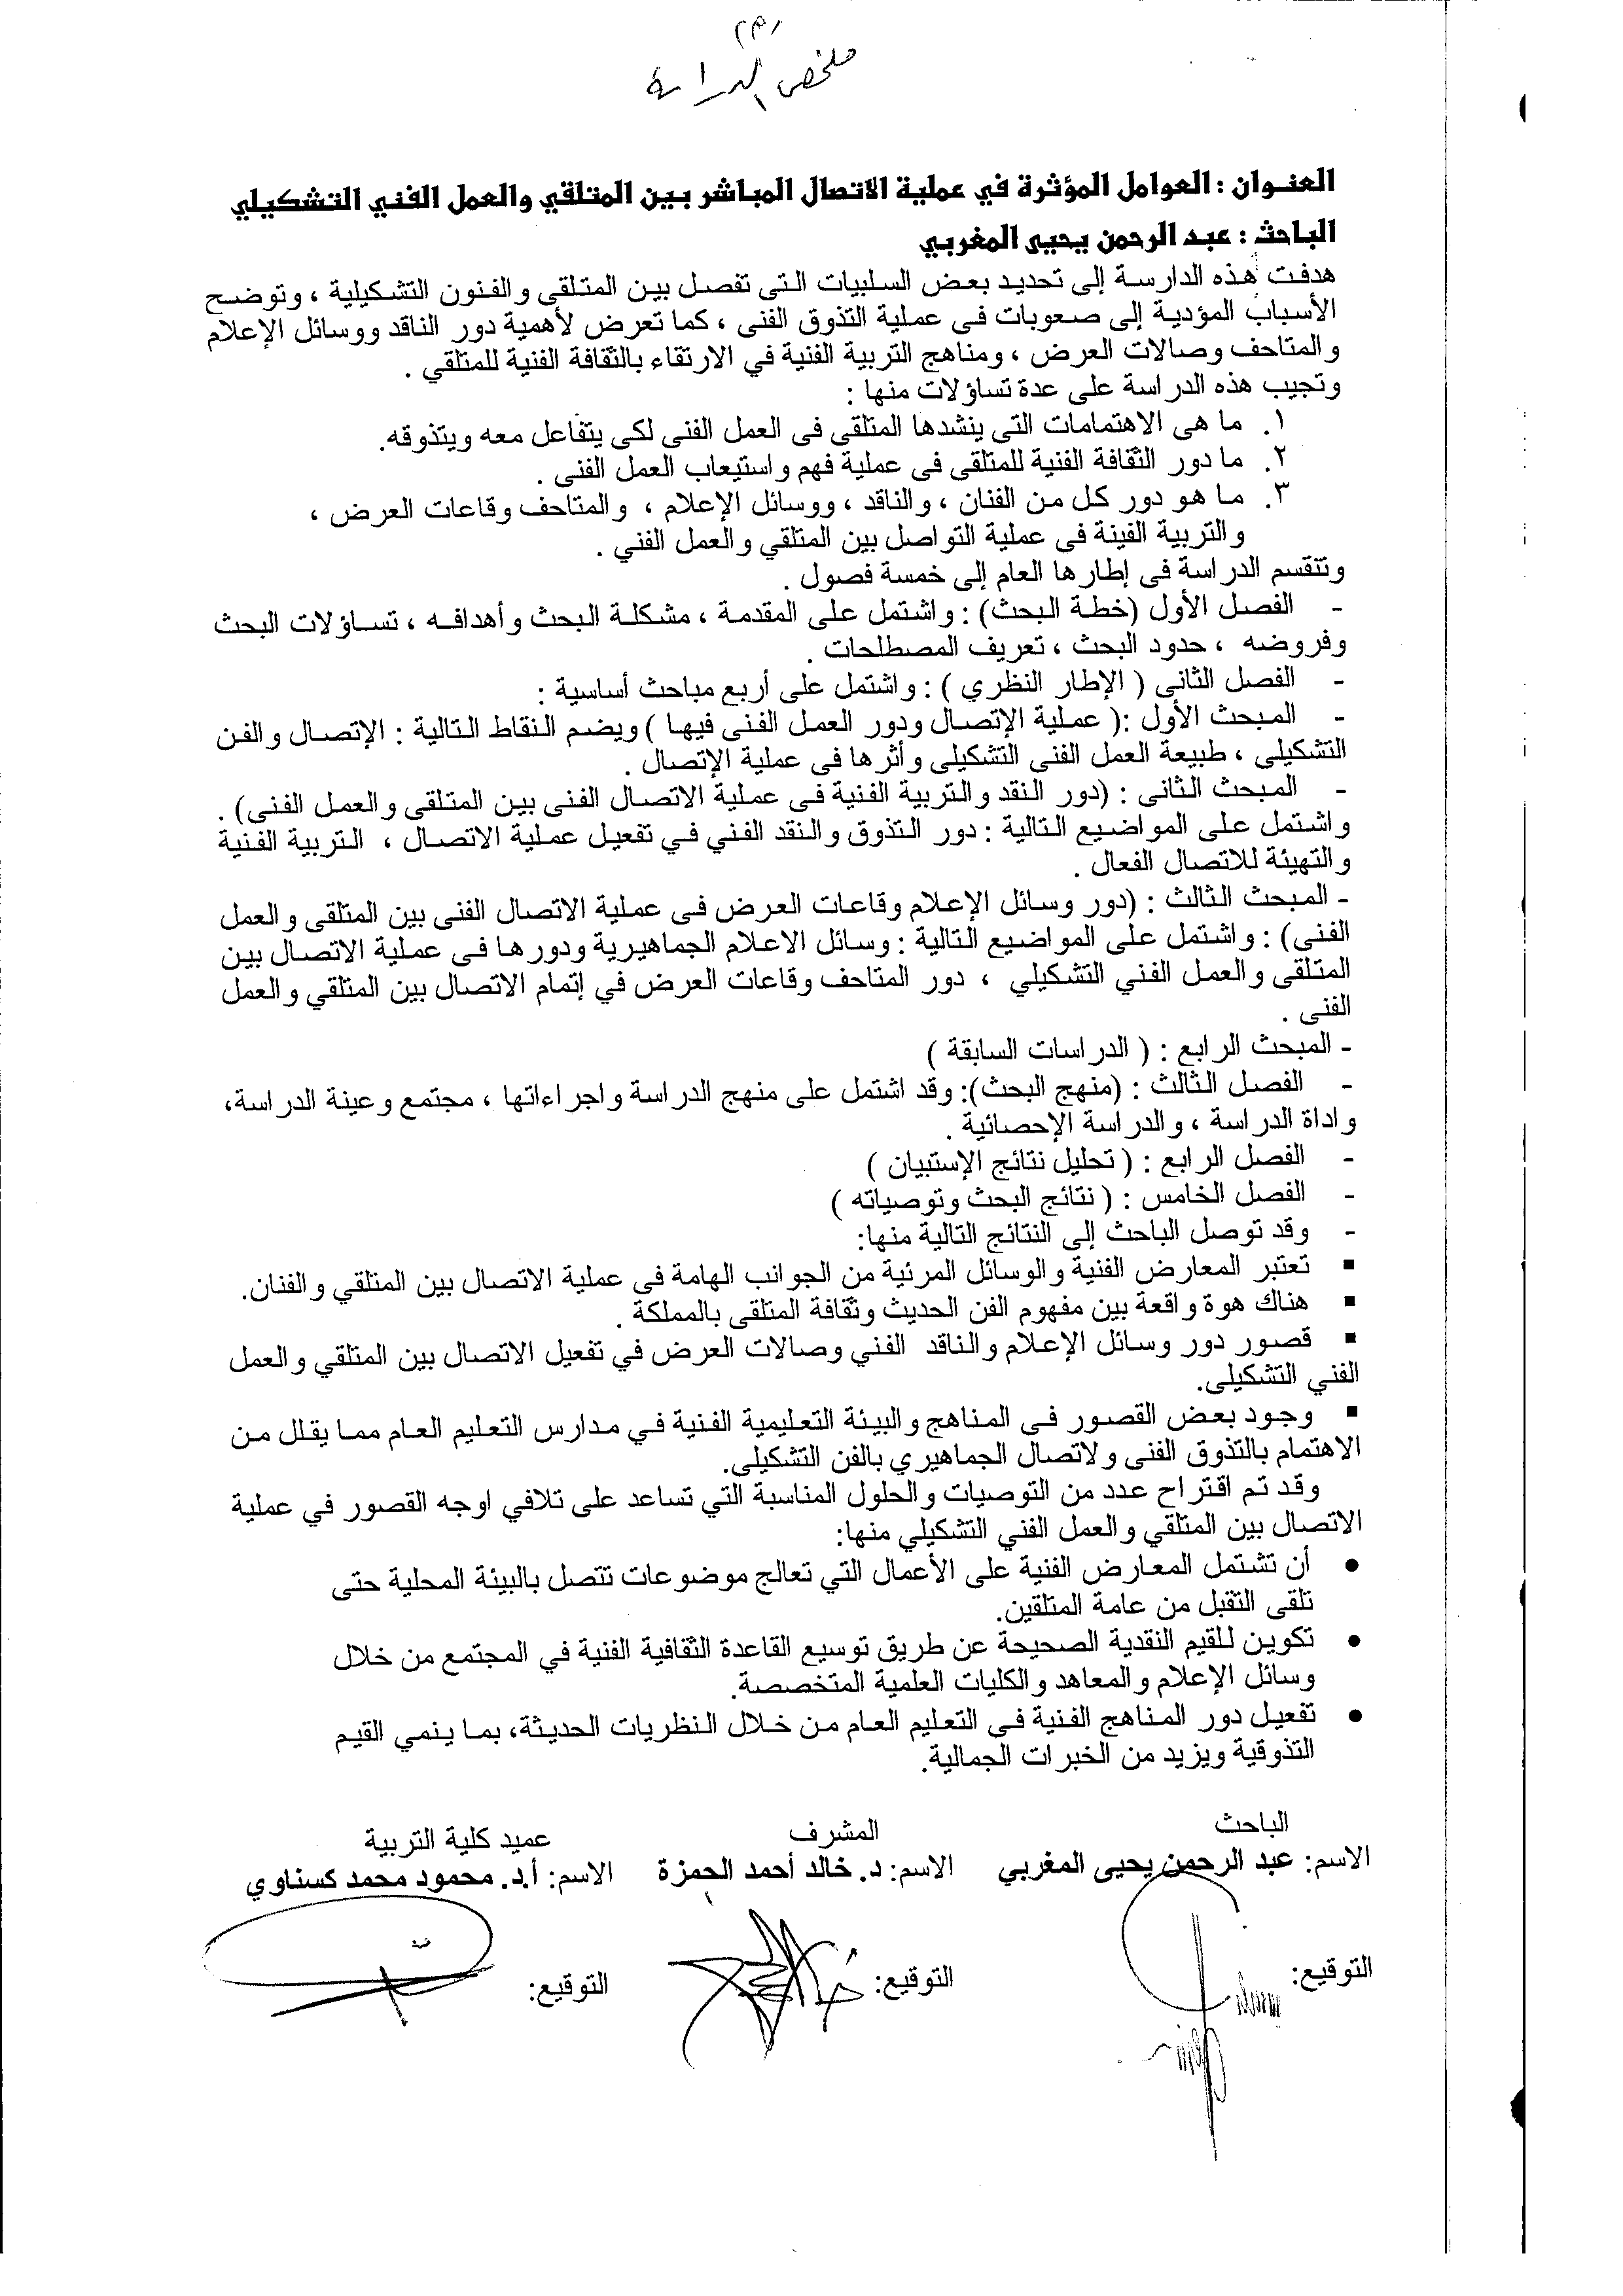 ملخص الدراسة
العنوان : العوامل المؤثرة في عملية الاتصال المباشر بين المتلقي والعمل الفني التشكيلي
الباحث : عبد الرحمن يحيى المغربي
هدفت هذه الدارسة إلى تحديد بعض السلبيات التى تفصل بين المتلقى والفنون التشكيلية ، وتوضح
الأسباب المؤدية إلى صعوبات فى عملية التذوق الفنى ، كما تعرض لأهمية دور الناقد ووسائل الإعلام
والمتاحف وصالات العرض ، ومناهج التربية الفنية في الارتقاء بالثقافة الفنية للمتلقي .
وتجيب هذه الدراسة على عدة تساؤلات منها :
١. ما هى الاهتمامات التى ينشدها المتلقى فى العمل الفنى لكى يتفاعل معه ويتذوقه.
٢. ما دور الثقافة الفنية للمتلقى فى عملية فهم واستيعاب العمل الفنى .
٣. ما هو دور كل من الفنان ، والناقد ، ووسائل الإعلام ، والمتاحف وقاعات العرض ،
والتربية الفينة فى عملية التواصل بين المتلقي والعمل الفني .
وتنقسم الدراسة فى إطارها العام إلى خمسة فصول .
- الفصل الأول (خطة البحث) : واشتمل على المقدمة ، مشكلة البحث وأهدافه ، تساؤلات البحث
وفروضه ، حدود البحث ، تعريف المصطلحات .
- الفصل الثانى ( الإطار النظري ) : واشتمل على أربع مباحث أساسية :
- المبحث الأول :( عملية الإتصال ودور العمل الفنى فيها ) ويضم النقاط التالية : الإتصال والفن
التشكيلى ، طبيعة العمل الفنى التشكيلى وأثرها فى عملية الإتصال .
- المبحث الثانى : (دور النقد والتربية الفنية فى عملية الاتصال الفنى بين المتلقى والعمل الفنى) .
واشتمل على المواضيع التالية : دور التذوق والنقد الفني في تفعيل عملية الاتصال ، التربية الفنية
والتهيئة للاتصال الفعال .
- المبحث الثالث : (دور وسائل الإعلام وقاعات العرض فى عملية الاتصال الفنى بين المتلقى والعمل
الفنى) : واشتمل على المواضيع التالية : وسائل الاعلام الجماهيرية ودورها فى عملية الاتصال بين
المتلقى والعمل الفني التشكيلي ، دور المتاحف وقاعات العرض في إتمام الاتصال بين المتلقي والعمل
الفنى .
- المبحث الرابع : ( الدراسات السابقة )
- الفصل الثالث : (منهج البحث): وقد اشتمل على منهج الدراسة واجراءاتها ، مجتمع وعينة الدراسة،
واداة الدراسة ، والدراسة الإحصائية .
- الفصل الرابع : ( تحليل نتائج الإستبيان )
- الفصل الخامس : ( نتائج البحث وتوصياته )
- وقد توصل الباحث إلى النتائج التالية منها:
▪ تعتبر المعارض الفنية والوسائل المرئية من الجوانب الهامة فى عملية الاتصال بين المتلقي والفنان.
▪ هناك هوة واقعة بين مفهوم الفن الحديث وثقافة المتلقى بالمملكة .
▪ قصور دور وسائل الإعلام والناقد الفني وصالات العرض في تفعيل الاتصال بين المتلقي والعمل
الفني التشكيلى.
▪ وجود بعض القصور فى المناهج والبيئة التعليمية الفنية في مدارس التعليم العام مما يقلل من
الاهتمام بالتذوق الفنى ولاتصال الجماهيري بالفن التشكيلى.
وقد تم اقتراح عدد من التوصيات والحلول المناسبة التي تساعد على تلافي اوجه القصور في عملية
الاتصال بين المتلقي والعمل الفني التشكيلي منها:
● أن تشتمل المعارض الفنية على الأعمال التي تعالج موضوعات تتصل بالبيئة المحلية حتى
تلقى التقبل من عامة المتلقين.
● تكوين للقيم النقدية الصحيحة عن طريق توسيع القاعدة الثقافية الفنية في المجتمع من خلال
وسائل الإعلام والمعاهد والكليات العلمية المتخصصة.
● تفعيل دور المناهج الفنية فى التعليم العام من خلال النظريات الحديثة، بما ينمي القيم
التذوقية ويزيد من الخبرات الجمالية.
الباحث المشرف عميد كلية التربية
الاسم: عبد الرحمن يحيى المغربي الاسم: د. خالد أحمد الحمزة الاسم: أ.د. محمود محمد كسناوي
التوقيع: التوقيع: التوقيع: